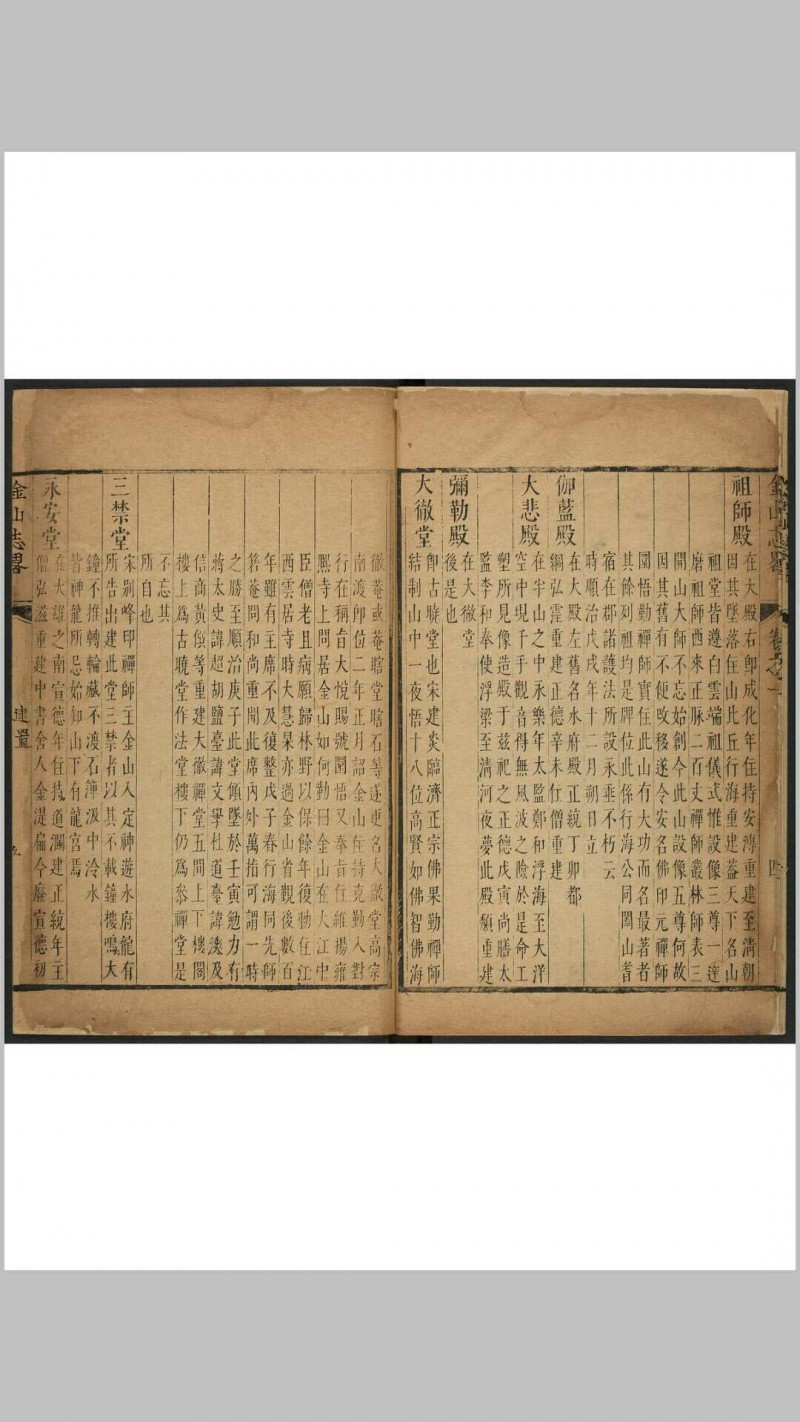 祖師殿
在大殿右卽成化年住持安溥重建至淸朝
因其墜落住山比丘行海重建葢天下名山
祖堂皆遵白雲端祖儀式惟設像三尊一達
磨祖師西來正脉二百丈禪師叢林師表三
開山大師不忘始創今此山設像五尊何故
因其舊有不便攺移遂令安名佛印元禪師
圜悟勤禪師實住此山有大功而名最著者
其餘列祖均是牌位此係行海公同閤山耆
宿在郡諸護法所設永垂不朽云
時順治戊戌年十二月朔日立
伽藍殿
在大殿左舊名水府殿正統丁卯都
綱弘霔重建正德辛未住僧重建
大悲殿
在半山之中永樂年太監鄭和浮海至大洋
空中現千手觀音得無風波之險於是命工
塑所見像造殿于兹祀之正德戊寅尚膳太
監李和奉使浮梁至清河夜夢此殿頽重建
彌勒殿
在大徹堂
後是也
大徹堂
卽古曉堂也宋建炎臨濟正宗佛果勤禪師
結制山中一夜悟十八位高賢如佛智佛海
徹菴或菴瞎堂瞎石等遂更名大徹堂高宗
南渡卽位二年正月詔金山住持克勤入對
行在稱旨大悅賜號圜悟又奉旨住維揚雍
熙寺上問居金山如何勤曰金山在大江中
臣僧老且病願歸林野以保餘年後勅住江
西雲居寺時大慧杲亦過金山省觀後數百
年雖有主席不及復整戊子春行海同先師
箬菴問和尚重開此席內外萬指可謂一時
之勝至順治庚子此堂傾墜於壬寅勉力有
蔣太史諱超胡鹽臺諱文學杜道臺諱漺及
信商黃僉等重建大徹禪堂五間上下樓閣
樓上爲古曉堂作法堂樓下仍爲叅禪堂是
不忘其
所自也
三禁堂
宋別峰印禪師主金山入定神遊水府龍有
所告出建此堂三禁者以其不載鐘樓鳴大
鐘不推轉輪藏不渡石簰汲中泠水
皆神龍所忌始仰山下有龍宮焉
永安堂
在大雄之南宣德年住持道瀾建正統年主
僧弘滋重建中書舍人金湜扁今廢宣德初
金山志畧
卷之一
金山志畧
建置